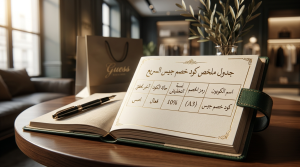 Guess
جدول ملخص كود خصم جيس السريع
اسم الكوبون رمز الخصم نسبة التخفيض حالة الكود
كود خصم جيس (A3) 10% فعال جيس